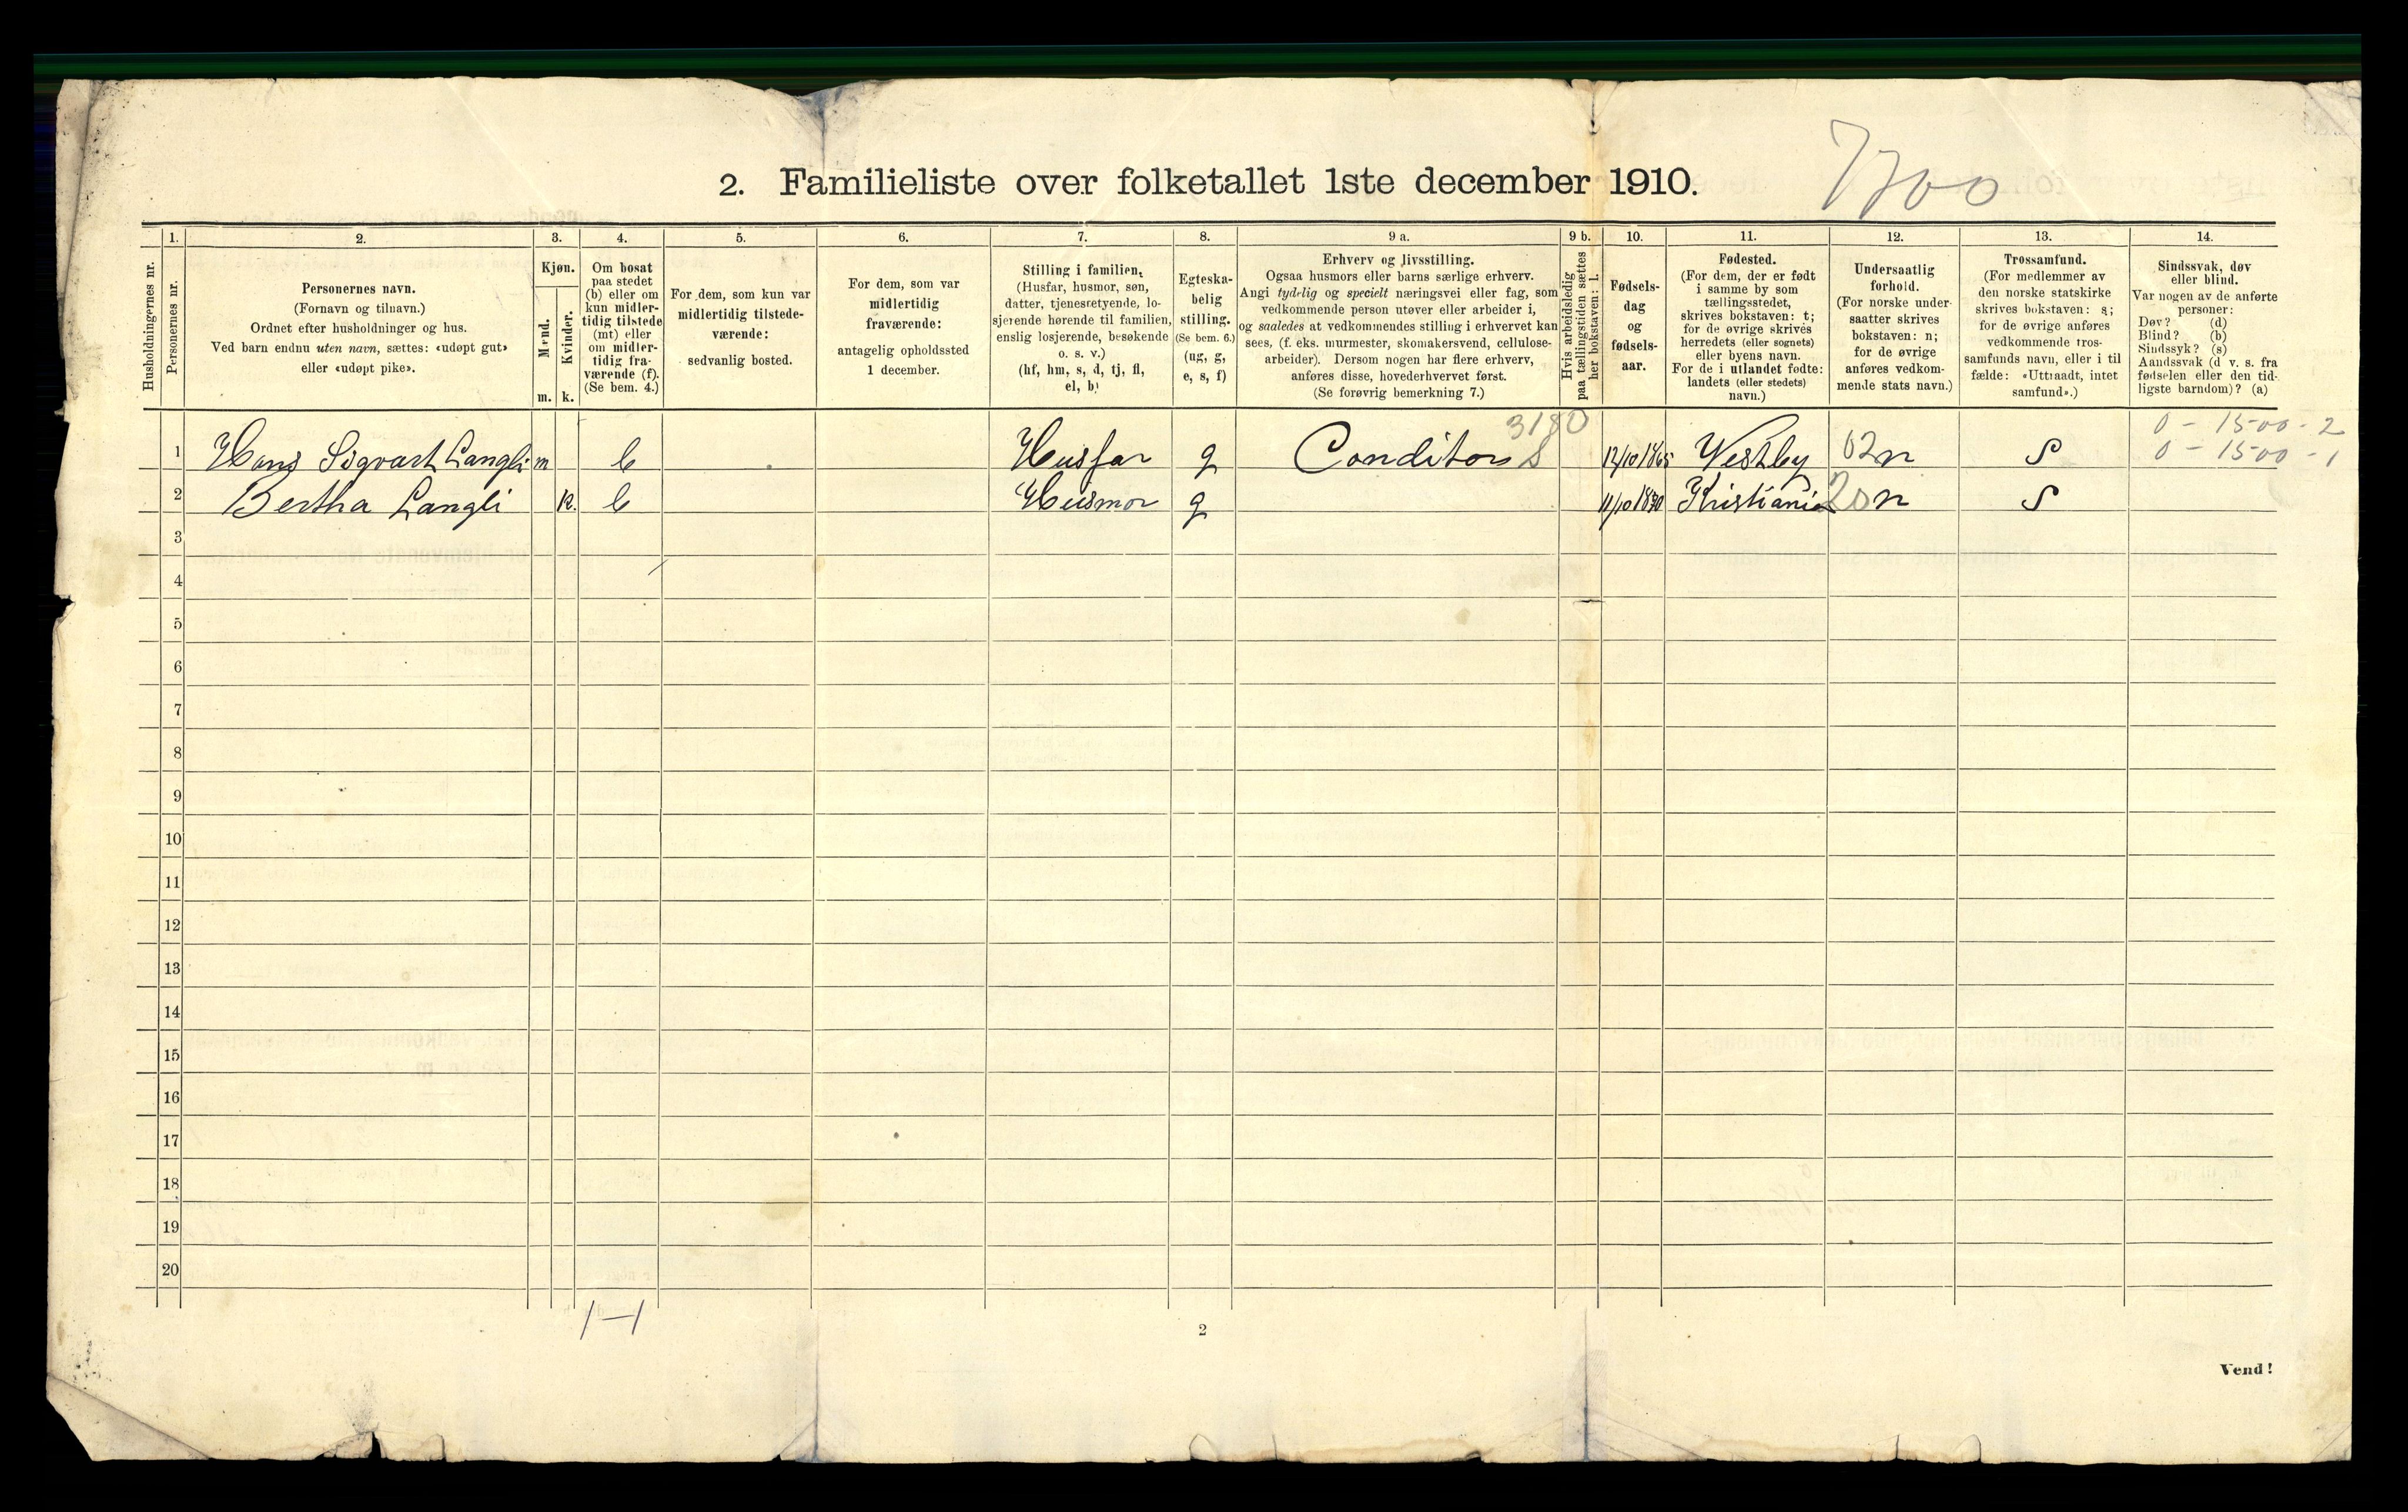 7700
2. Familieliste over folketallet 1ste december 1910.
Husholdningernes nr.
1.
Personernes nr.
2.
Personernes navn.
(Fornavn og tilnavn.)
Ordnet efter husholdninger og hus.
Ved barn endnu uten navn, sættes: «udøpt gut»
eller «udøpt pike».
3.
Kjøn.
Mænd.
Kvinder.
m.
k.
4.
Om bosat
paa stedet
(b) eller om
kun midler-
tidig tilstede
(mt) eller
om midler-
tidig fra-
værende (f).
(Se bem. 4.)
5.
For dem, som kun var
midlertidig tilstede-
værende:
sedvanlig bosted.
6.
For dem, som var
midlertidig
fraværende:
antagelig opholdssted
1 december.
7.
Stilling i familien,
(Husfar, husmor, søn,
datter, tjenestetyende, lo-
sjerende hørende til familien,
enslig losjerende, besøkende
o. s. v.)
(hf, hm, s, d, tj, fl,
el, b)
8.
Egteska-
belig
stilling.
(Se bem. 6.)
(ug, g,
e, s, f)
9 a.
Erhverv og livsstilling.
Ogsaa husmors eller barns særlige erhverv.
Angi tydelig og specielt næringsvei eller fag, som
vedkommende person utøver eller arbeider i,
og saaledes at vedkommendes stilling i erhvervet kan
sees, (f. eks. murmester, skomakersvend, cellulose-
arbeider). Dersom nogen har flere erhverv,
anføres disse, hovederhvervet først.
(Se forøvrig bemerkning 7.)
9 b.
Hvis arbeidsledig
paa tællingstiden sættes
her bokstaven: l.
10.
Fødsels-
dag
og
fødsels-
aar.
11.
Fødested.
(For dem, der er født
i samme by som
tællingsstedet,
skrives bokstaven: t;
for de øvrige skrives
herredets (eller sognets)
eller byens navn.
For de i utlandet fødte:
landets (eller stedets)
navn.)
12.
Undersaatlig
forhold.
(For norske under-
saatter skrives
bokstaven: n;
for de øvrige
anføres vedkom-
mende stats navn.)
13.
Trossamfund.
(For medlemmer av
den norske statskirke
skrives bokstaven: s;
for de øvrige anføres
vedkommende tros-
samfunds navn, eller i til
fælde: «Uttraadt, intet
samfund».)
14.
Sindssvak, døv
eller blind.
Var nogen av de anførte
personer:
Døv? (d)
Blind? (b)
Sindssyk? (s)
Aandssvak (d v. s. fra
fødselen eller den tid-
ligste barndom)? (a)
3180
0 - 1500 - 2
1 Hans Sigvart Langli m b Husfar g Conditor S 12/10 1865 Westby 02 n S 0 - 1500 - 1
2 Bertha Langli k. b Husmor g 11/10 1830 Kristiania 20 n S
3
4
5
6
7
8
9
10
11
12
13
14
15
16
17
18
19
20
1-1
2
Vend!